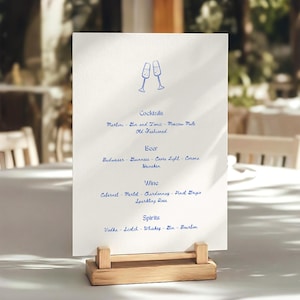 Cocktails
Martini - Gin and Tonic - Moscow Mule
Old Fashioned
Beer
Budweiser - Guinness - Coors Light - Corona
Heineken
Wine
Cabernet - Merlot - Chardonnay - Pinot Grigio
Sparkling Rosé
Spirits
Vodka - - Whiskey - Gin - Bourbon